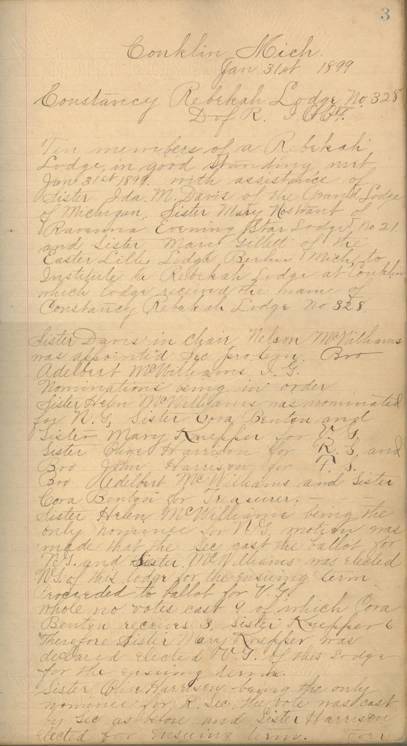 3
Conklin Mich.
Jan 31st 1899
Constancy Rebekah Lodge No. 328
D of R. I.O.O.F.
Ten members of a Rebekah
Lodge, in good standing met
Jan 31st 1899. with assistance of
Sister Ida M. Davis of the Grand Lodge
of Michigan, Sister Mary of
Ravenna Evening Star Lodge, No 21
and Sister Gillett of the
Easter Lillie Lodge Berlin Mich, to
Institute a Rebekah Lodge at Conklin
which lodge received the name of
Constancy Rebekah Lodge No 328
Sister Davis in chair, Nelson McWilliams
was appointed Sec protem. Bro
Adelbert McWilliams, I. G.
Nominations being in order
Sister Helen McWilliams was nominated
for N.G. Sister Cora Benton and
Sister Mary Knepper for V. G.
Sister Olive Harrison for R. S. and
Bro John Harrison for F. S.
Bro Adelbert McWilliams and Sister
Cora Benton for Treasurer.
Sister Helen McWilliams being the
only nominee for N.G. motion was
made that the Sec cast the ballot for
N.G. and Sister McWilliams was elected
N.G. of this lodge for the ensuing term
Proceeded to ballot for V.G.
whole no votes cast 9 of which Cora
Benton receives 3, Sister Knepper 6
Therefore Sister Mary Knepper was
declared elected V.G. of this Lodge
for the ensuing term.
Sister Olive Harrison being the only
nominee for R. Sec. the vote was cast
by Sec as before and Sister Harrison
elected for ensuing term. For